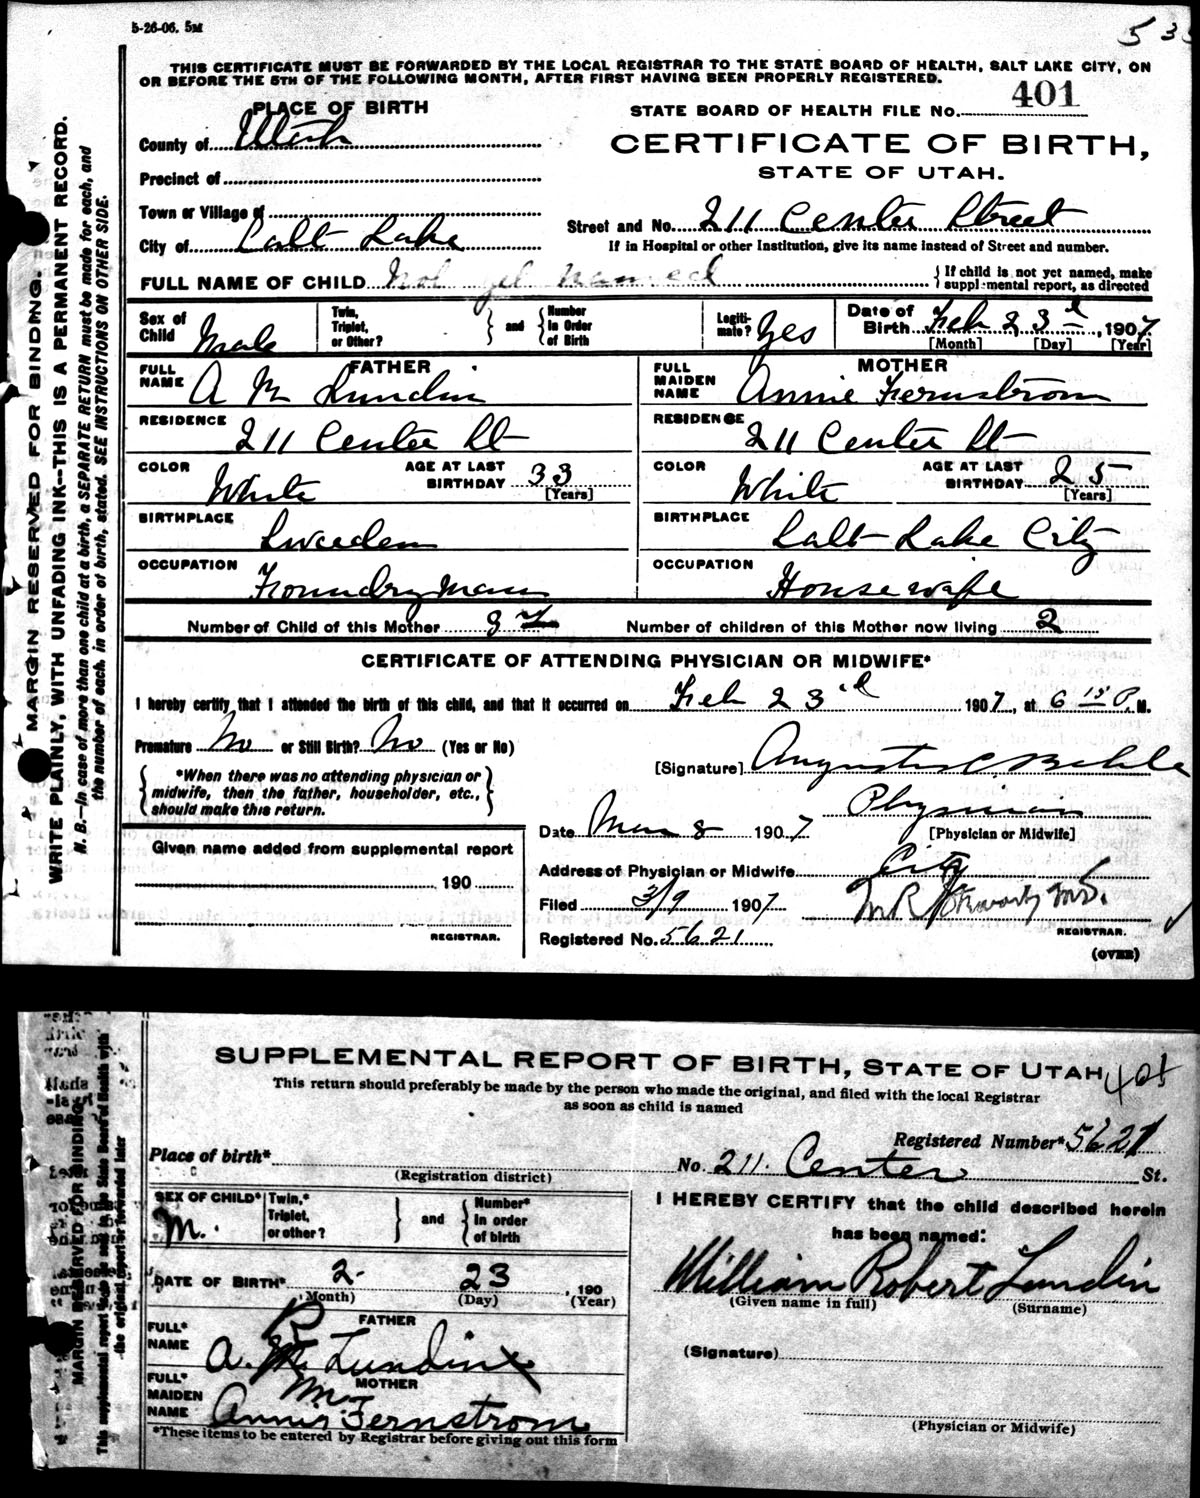 5-26-06. 5M
THIS CERTIFICATE MUST BE FORWARDED BY THE LOCAL REGISTRAR TO THE STATE BOARD OF HEALTH, SALT LAKE CITY, ON
OR BEFORE THE 5TH OF THE FOLLOWING MONTH, AFTER FIRST HAVING BEEN PROPERLY REGISTERED.
PLACE OF BIRTH
STATE BOARD OF HEALTH FILE No. 401
County of Utah
CERTIFICATE OF BIRTH,
STATE OF UTAH.
Precinct of
Town or Village of
Street and No. 211 Center Street
City of Salt Lake
If in Hospital or other Institution, give its name instead of Street and number.
FULL NAME OF CHILD Not yet named
If child is not yet named, make supplemental report, as directed
Sex of Child Male
Twin, Triplet, or Other?
and
Number in Order of Birth
Legitimate? Yes
Date of Birth Feb 23d, 1907
[Month] [Day] [Year]
FATHER
FULL NAME A M Lundin
MOTHER
FULL MAIDEN NAME Annie Fernstrom
RESIDENCE 211 Center St
RESIDENCE 211 Center St
COLOR White AGE AT LAST BIRTHDAY 33 [Years]
COLOR White AGE AT LAST BIRTHDAY 25 [Years]
BIRTHPLACE Sweeden
BIRTHPLACE Salt Lake City
OCCUPATION Foundry man
OCCUPATION House wife
Number of Child of this Mother
Number of children of this Mother now living 2
CERTIFICATE OF ATTENDING PHYSICIAN OR MIDWIFE*
I hereby certify that I attended the birth of this child, and that it occurred on Feb 23d 1907, at 6 15 P. M.
Premature No or Still Birth? No (Yes or No)
[Signature] Augustus C. Behle
*When there was no attending physician or
midwife, then the father, householder, etc.,
should make this return.
Physician
[Physician or Midwife]
Date Mar 8 1907
Given name added from supplemental report
190
REGISTRAR.
Address of Physician or Midwife City
Filed 3/9 1907
M.D.
REGISTRAR.
Registered No. 5621
(OVER)
MARGIN RESERVED FOR BINDING.
WRITE PLAINLY, WITH UNFADING INK--THIS IS A PERMANENT RECORD.
N. B.—In case of more than one child at a birth, a SEPARATE RETURN must be made for each, and
the number of each, in order of birth, stated. SEE INSTRUCTIONS ON OTHER SIDE.
SUPPLEMENTAL REPORT OF BIRTH, STATE OF UTAH
401
This return should preferably be made by the person who made the original, and filed with the local Registrar
as soon as child is named
Registered Number* 5621
Place of birth* No. 211. Center St.
(Registration district)
SEX OF CHILD* M.
Twin,* Triplet, or other?
and
Number* in order of birth
I HEREBY CERTIFY that the child described herein
has been named:
William Robert Lundin
(Given name in full) (Surname)
DATE OF BIRTH* 2- 23, 190
(Month) (Day) (Year)
FATHER
FULL* NAME A. R Lundin
(Signature)
MOTHER
FULL* MAIDEN NAME Annie M. Fernstrom
(Physician or Midwife)
*These items to be entered by Registrar before giving out this form
MARGIN RESERVED FOR BINDING